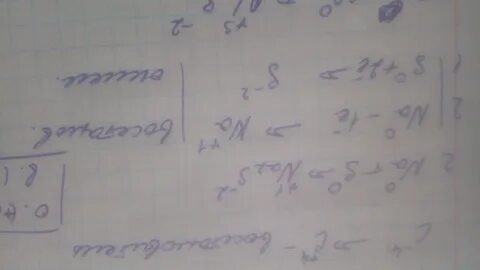 C⁻⁴ → C⁺⁴ - восстановитель
2 Na⁰ + S⁰ → Na₂⁺¹S⁻²
2 | Na⁰ - 1e⁻ → Na⁺¹ | восстанов.
1 | S⁰ + 2e⁻ → S⁻² | окислит.
+3 -2